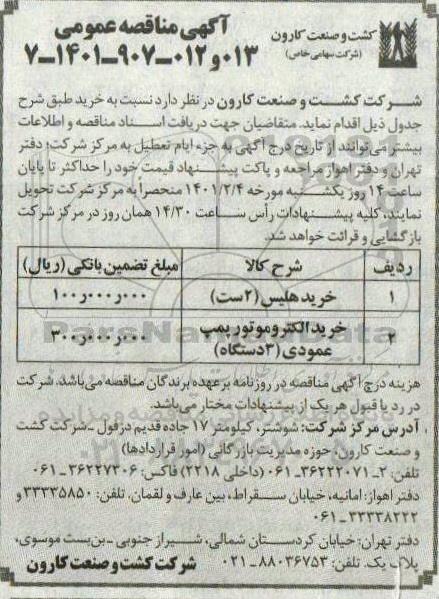 کشت و صنعت کارون
(شرکت سهامی خاص)
آگهی مناقصه عمومی
۰۱۳ و ۰۱۲-۹۰۷-۱۴۰۱-۷
شرکت کشت و صنعت کارون در نظر دارد نسبت به خرید طبق شرح
جدول ذیل اقدام نماید. متقاضیان جهت دریافت اسناد مناقصه و اطلاعات
بیشتر می‌توانند از تاریخ درج آگهی به جزء ایام تعطیل به مرکز شرکت؛ دفتر
تهران و دفتر اهواز مراجعه و پاکت پیشنهاد قیمت خود را حداکثر تا پایان
ساعت ۱۴ روز یکشنبه مورخه ۱۴۰۱/۲/۴ منحصراً به مرکز شرکت تحویل
نمایند، کلیه پیشنهادات رأس ساعت ۱۴/۳۰ همان روز در مرکز شرکت
بازگشایی و قرائت خواهد شد.
ردیف شرح کالا مبلغ تضمین بانکی (ریال)
۱ خرید هلیس (۲ست) ۱۰۰ر۰۰۰ر۰۰۰
۲ خرید الکتروموتور پمپ
عمودی (۳دستگاه) ۳۰۰ر۰۰۰ر۰۰۰
هزینه درج آگهی مناقصه در روزنامه بر عهده برندگان مناقصه می‌باشد. شرکت
در رد یا قبول هر یک از پیشنهادات مختار می‌باشد.
آدرس مرکز شرکت: شوشتر، کیلومتر ۱۷ جاده قدیم دزفول - شرکت کشت
و صنعت کارون، حوزه مدیریت بازرگانی (امور قراردادها)
تلفن: ۲-۳۶۲۲۲۰۷۱-۰۶۱ (داخلی ۲۲۱۸) فاکس: ۳۶۲۲۷۳۰۶-۰۶۱
دفتر اهواز: امانیه، خیابان سقراط، بین عارف و لقمان، تلفن: ۳۳۳۳۵۸۵۰ و
۳۳۳۳۸۲۲۲-۰۶۱
دفتر تهران: خیابان کردستان شمالی، شیراز جنوبی - بن‌بست موسوی،
پلاک یک. تلفن: ۸۸۰۳۶۷۵۳-۰۲۱ شرکت کشت و صنعت کارون